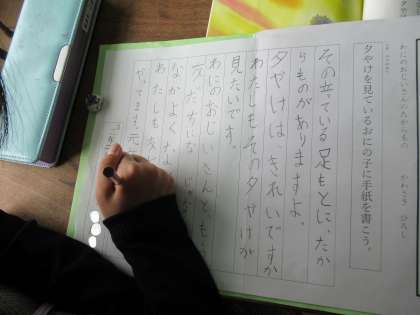 わにのおじいさんのたからもの　かわさき ひろし
夕やけを見ているおにの子に手紙を書こう。
その立ている足もとに、たか
らものがありますよ。
夕やけは、きれいですか
わたしもその夕やけが
見たいです。
わにのおじいさんと、も
友だちにな
なかよく
わたしも